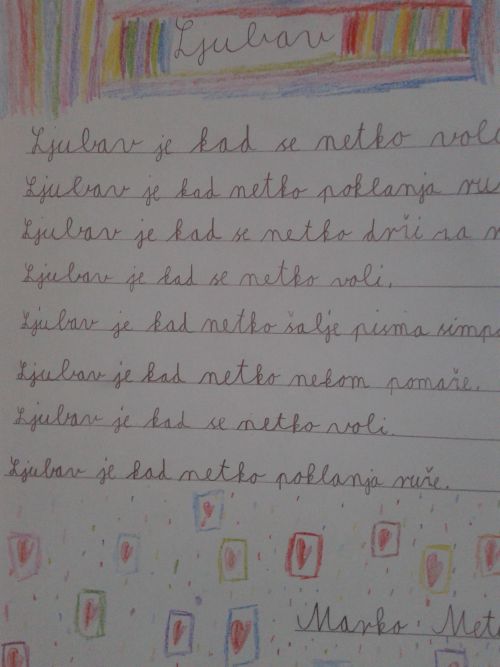 Ljubav
Ljubav je kad se netko voli
Ljubav je kad netko poklanja
Ljubav je kad se netko drži za
Ljubav je kad se netko voli.
Ljubav je kad netko šalje pisma
Ljubav je kad netko nekom pomaže.
Ljubav je kad se netko voli.
Ljubav je kad netko poklanja ruže.
Marko